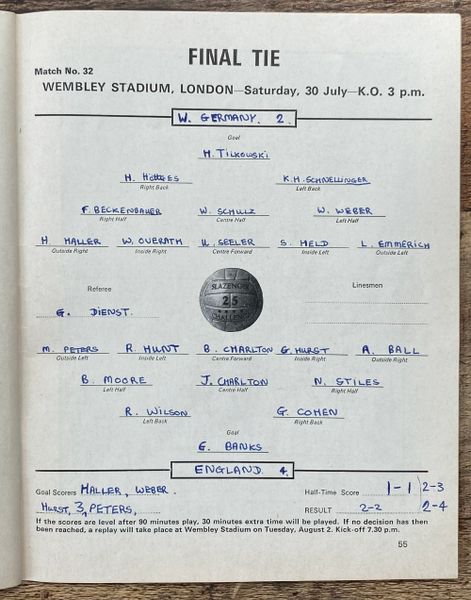 FINAL TIE
Match No. 32
WEMBLEY STADIUM, LONDON—Saturday, 30 July—K.O. 3 p.m.
W. GERMANY. 2.
Goal
H. TILKOWSKI
H. HÖTTGES K.H. SCHNELLINGER
Right Back Left Back
F. BECKENBAUER W. SCHULZ W. WEBER
Right Half Centre Half Left Half
H. HALLER W. OVERATH U. SEELER S. HELD L. EMMERICH
Outside Right Inside Right Centre Forward Inside Left Outside Left
Referee Linesmen
SLAZENGER
25
CHALLENGE
G. DIENST.
M. PETERS R. HUNT B. CHARLTON G. HURST A. BALL
Outside Left Inside Left Centre Forward Inside Right Outside Right
B. MOORE J. CHARLTON N. STILES
Left Half Centre Half Right Half
R. WILSON G. COHEN
Left Back Right Back
Goal
G. BANKS
ENGLAND. 4.
Goal Scorers HALLER, WEBER. Half-Time Score 1-1 2-3
HURST, 3, PETERS, RESULT 2-2 2-4
If the scores are level after 90 minutes play, 30 minutes extra time will be played. If no decision has then
been reached, a replay will take place at Wembley Stadium on Tuesday, August 2. Kick-off 7.30 p.m.
55